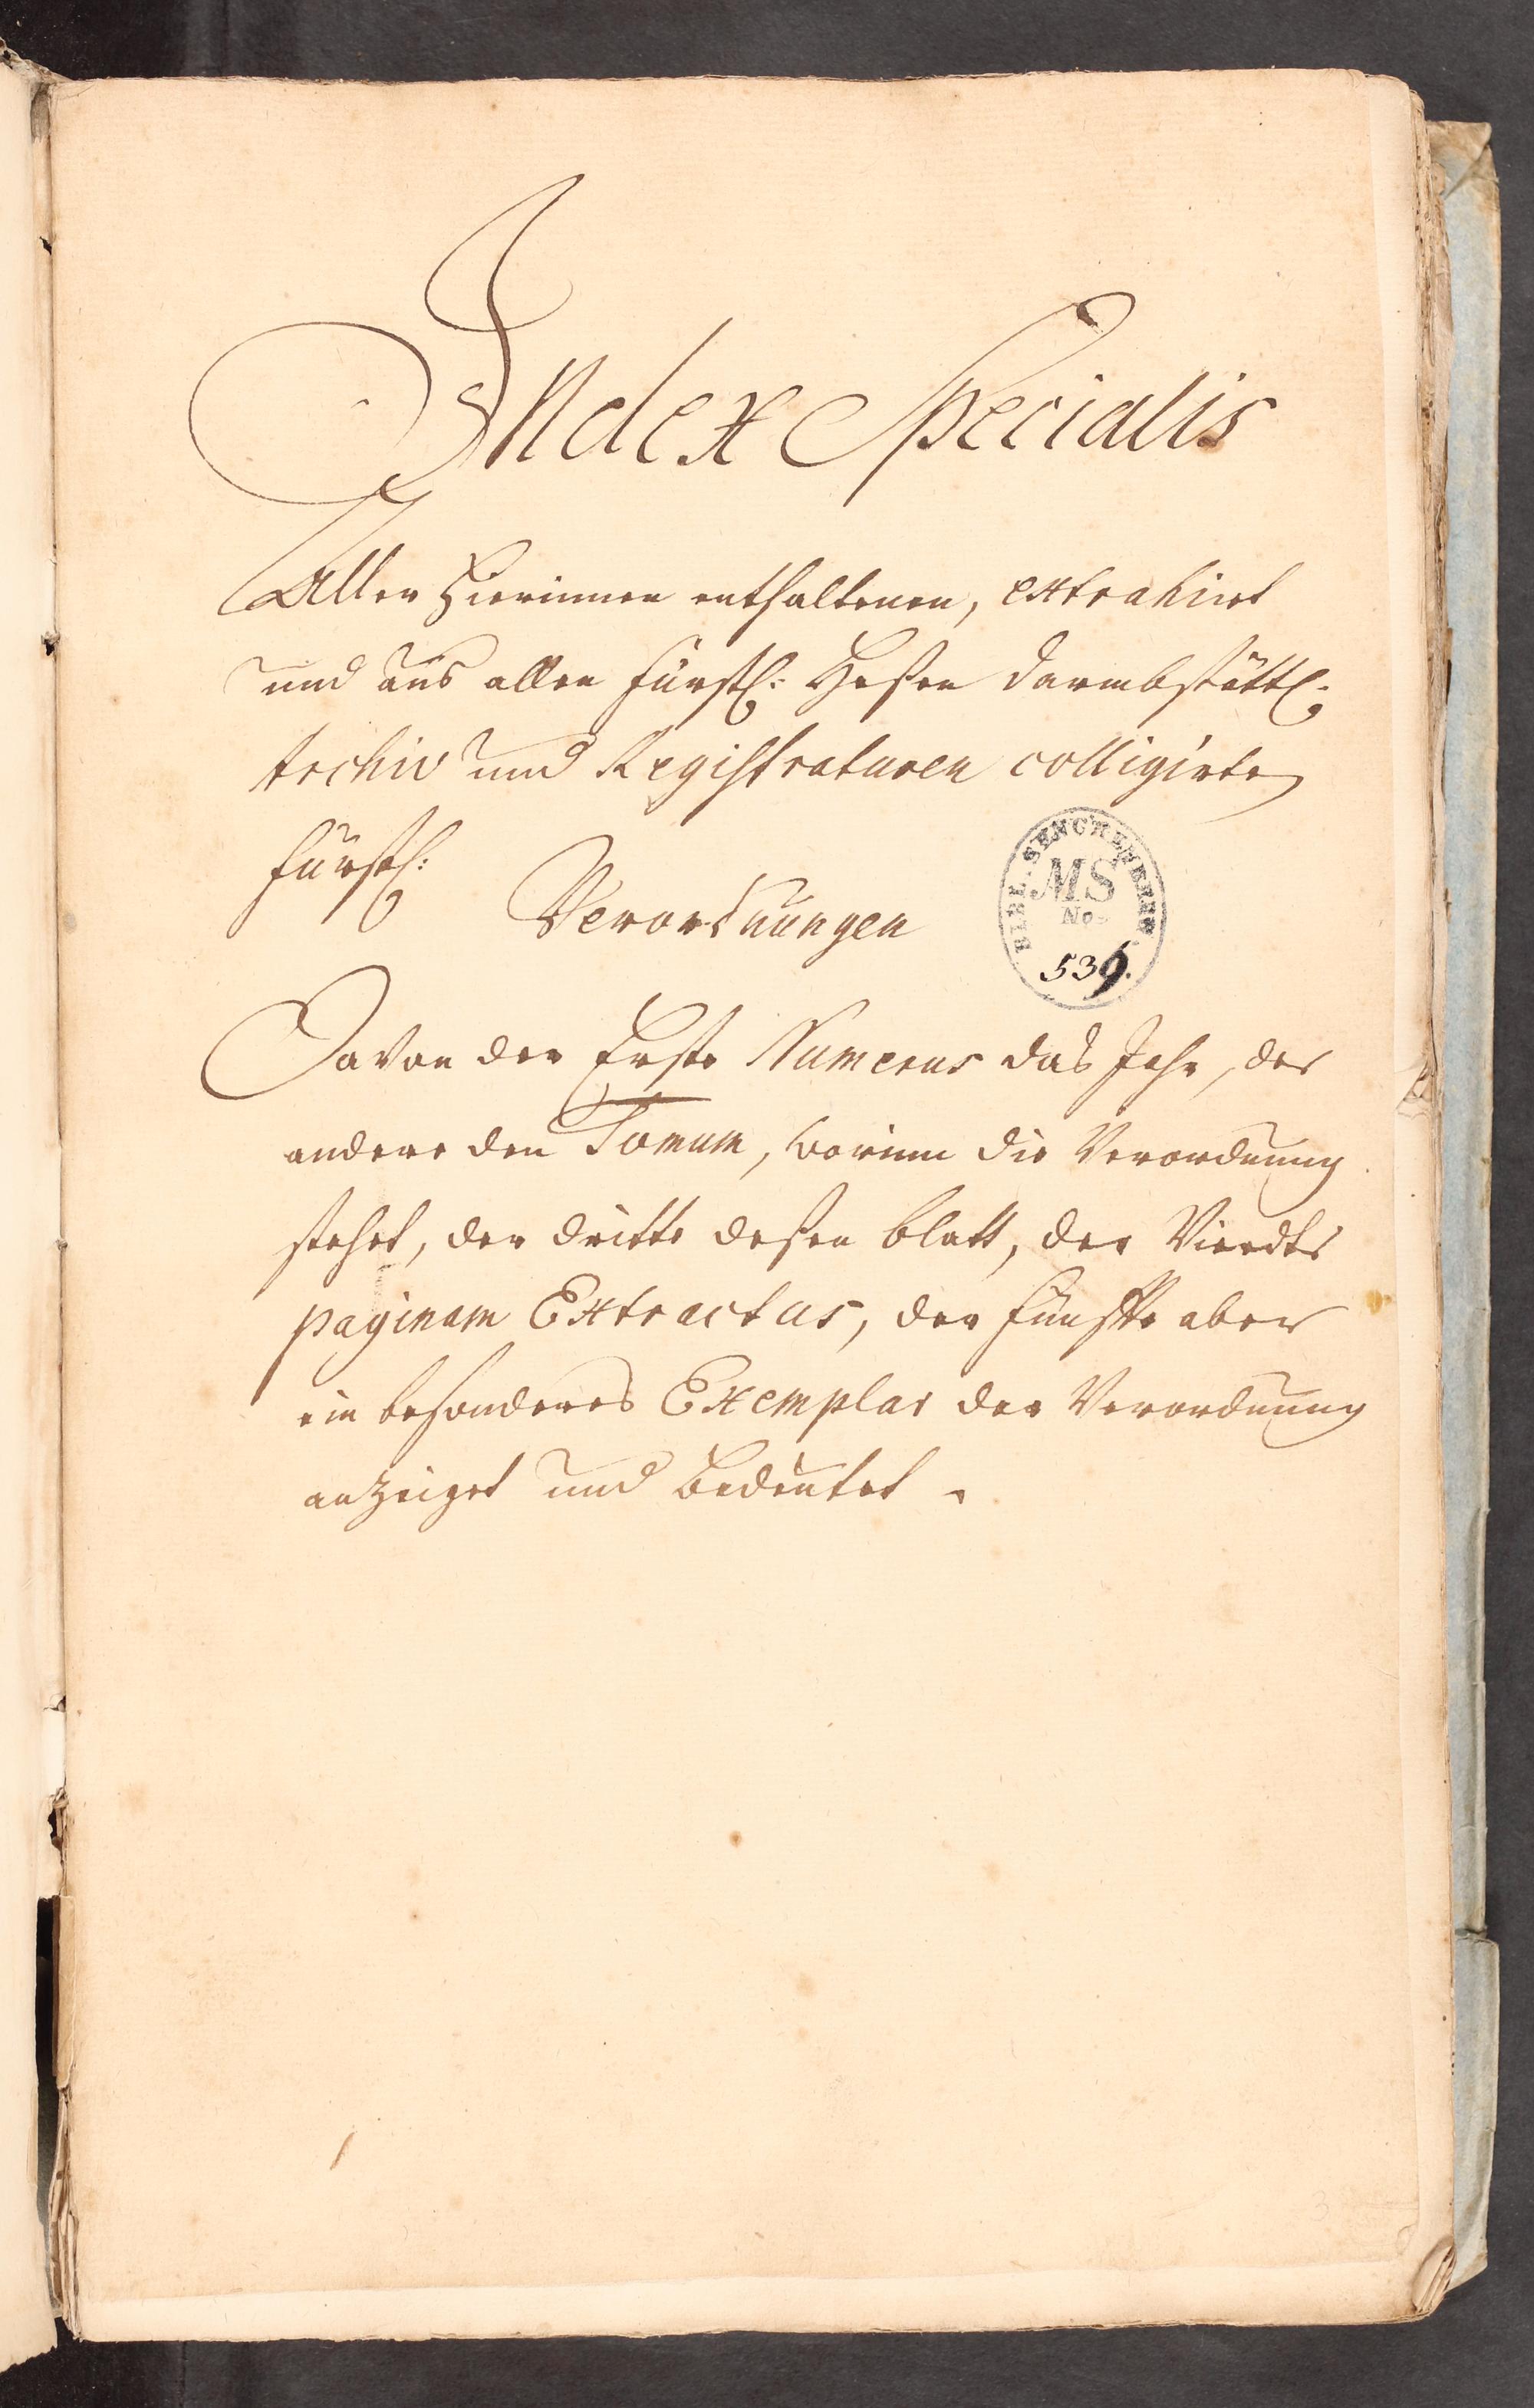 Index Specialis
Aller hierinnen enthaltenen, extrahirt
und aus allen Fürstl: Heßen Darmbstättl:
Archiv und Registraturen colligirte
Fürstl:
Verordnungen
BIBL. SENCKENBERG
MS
No.
539.
Davon der Erste Numerus das Jahr, der
andere den Tomum, worinn die Verordnung
stehet, der dritte deßen blatt, der Vierdte
paginam Extractus, der fünffte aber
ein besonderes Exemplar der Verordnung
anzeiget und bedeutet.
3